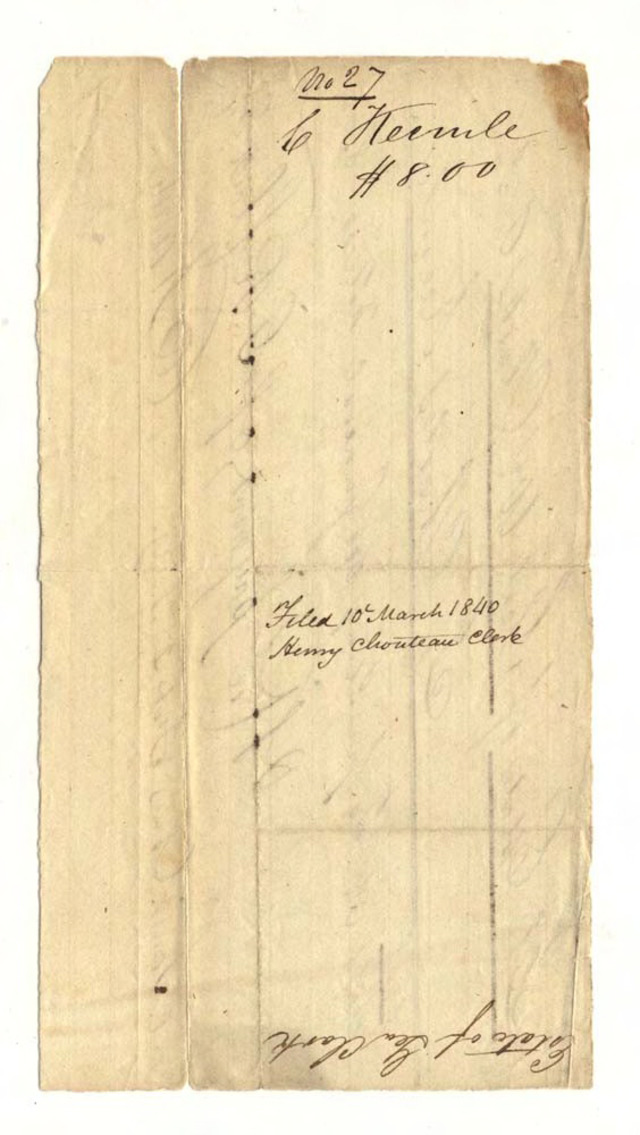 No 27
C Keemle
$8.00
Filed 10th March 1840
Henry Chouteau Clerk
Estate of Gen Clark